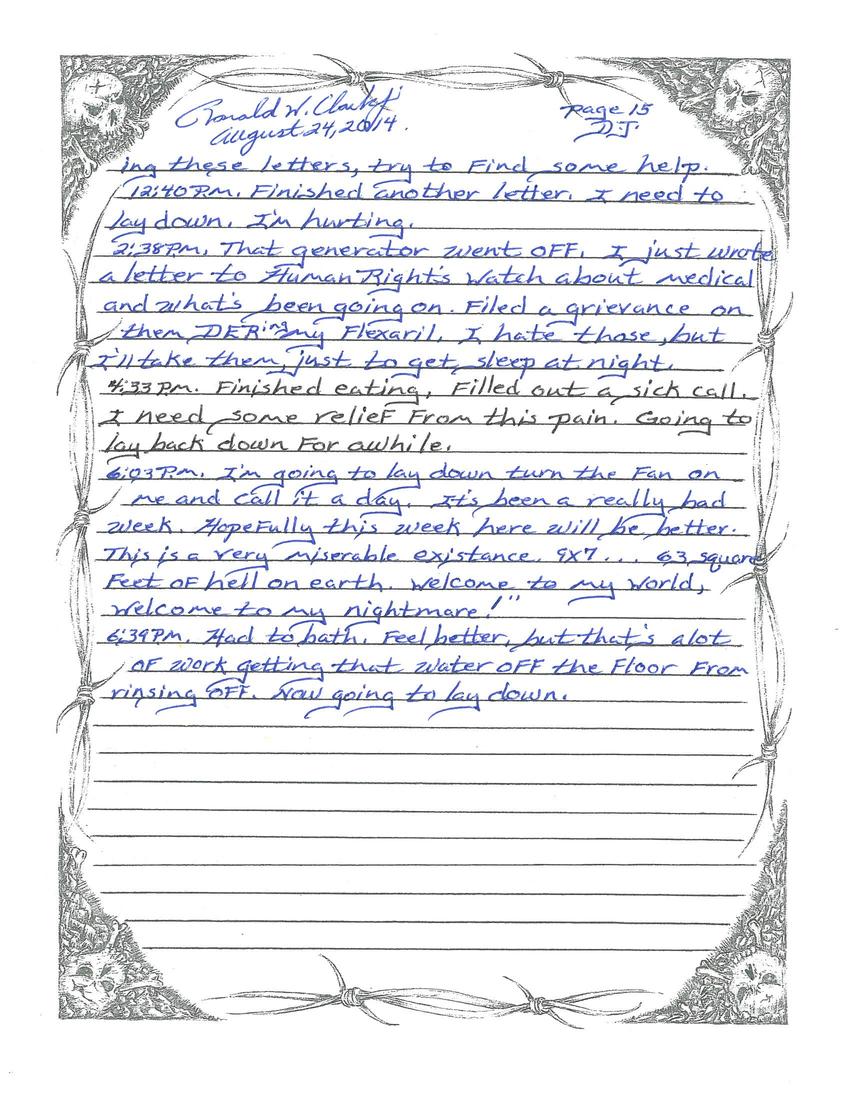 Ronald W. Clark Jr page 15
August 24, 2014. DJ
ing these letters, try to Find some help.
12:40 P.M. Finished another letter. I need to
lay down. I'm hurting.
2:38 P.M. That generator went OFF. I just wrote
a letter to Human Right's Watch about medical
and what's been going on. Filed a grievance on
them DERing my Flexaril. I hate those, but
I'll take them, just to get sleep at night.
4:33 P.M. Finished eating, Filled out a sick call.
I need some relieF From this pain. Going to
lay back down For awhile.
6:03 P.M. I'm going to lay down turn the Fan on
me and call it a day. It's been a really bad
week. HopeFully this week here will be better.
This is a very miserable existance. 9x7... 63 square
Feet oF hell on earth. Welcome to my world,
welcome to my nightmare!"
6:39 P.M. Had to bath. Feel better, but that's alot
oF work getting that water oFF the Floor From
rinsing oFF. Now going to lay down.